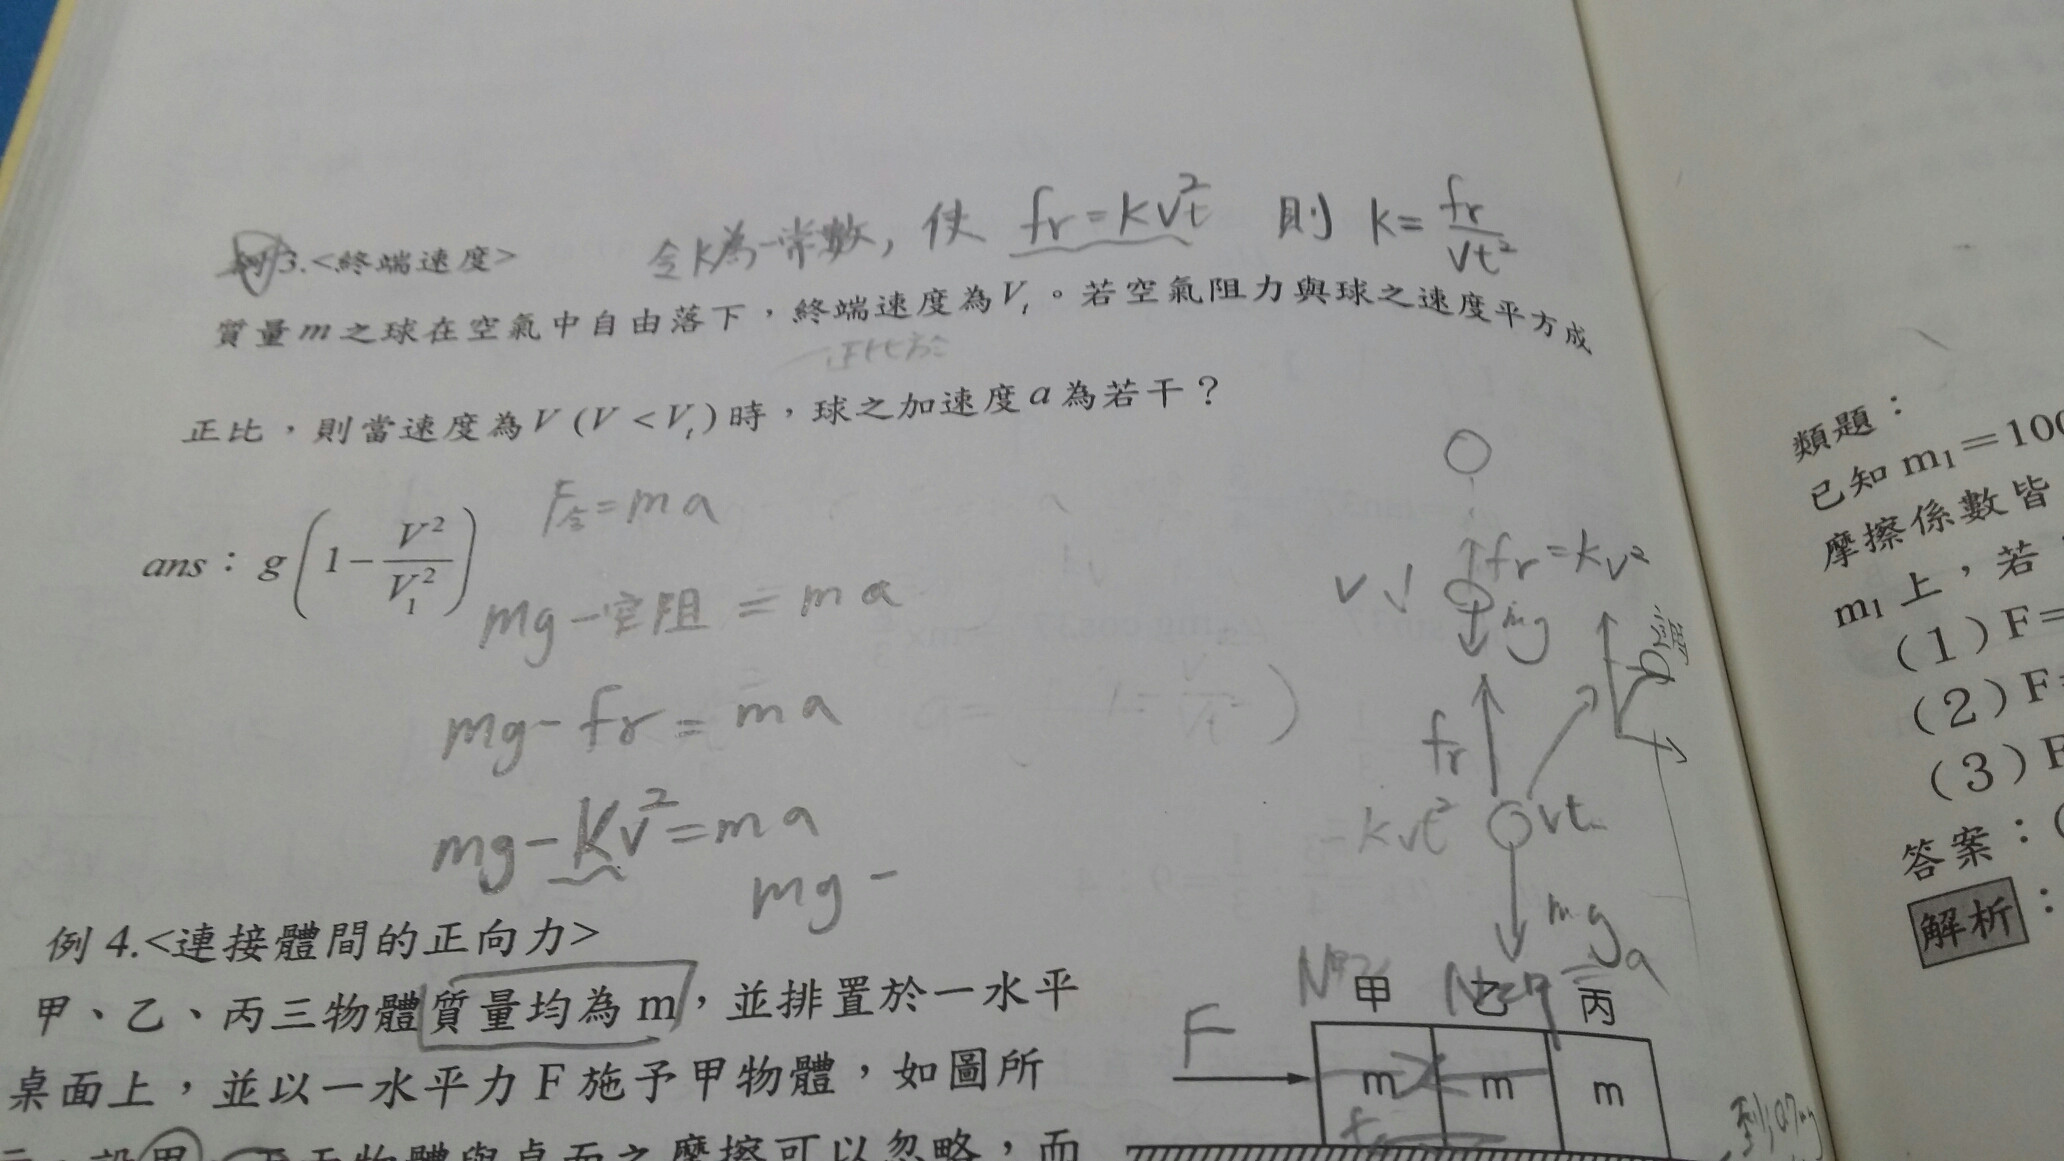 例3.<終端速度>
令k為一常數, 使 fr=kvt² 則 k=fr/vt²
質量m之球在空氣中自由落下，終端速度為Vₜ。若空氣阻力與球之速度平方成
正比於
正比，則當速度為V(V<Vₜ)時，球之加速度a為若干？
ans：g(1-V²/V₁²)
F合=ma
mg-空阻=ma
mg-fr=ma
mg-kv²=ma
mg-
v↓
fr=kv²
mg
fr
-kvt²
vt
mg
例4.<連接體間的正向力>
甲、乙、丙三物體質量均為m，並排置於一水平
桌面上，並以一水平力F施予甲物體，如圖所
物體與桌面之摩擦可以忽略，而
甲 乙 丙
F
m m m
類題：
已知 m₁=100
摩擦係數皆
m₁上，若
(1)F=
(2)F=
(3)F
答案：(
解析：